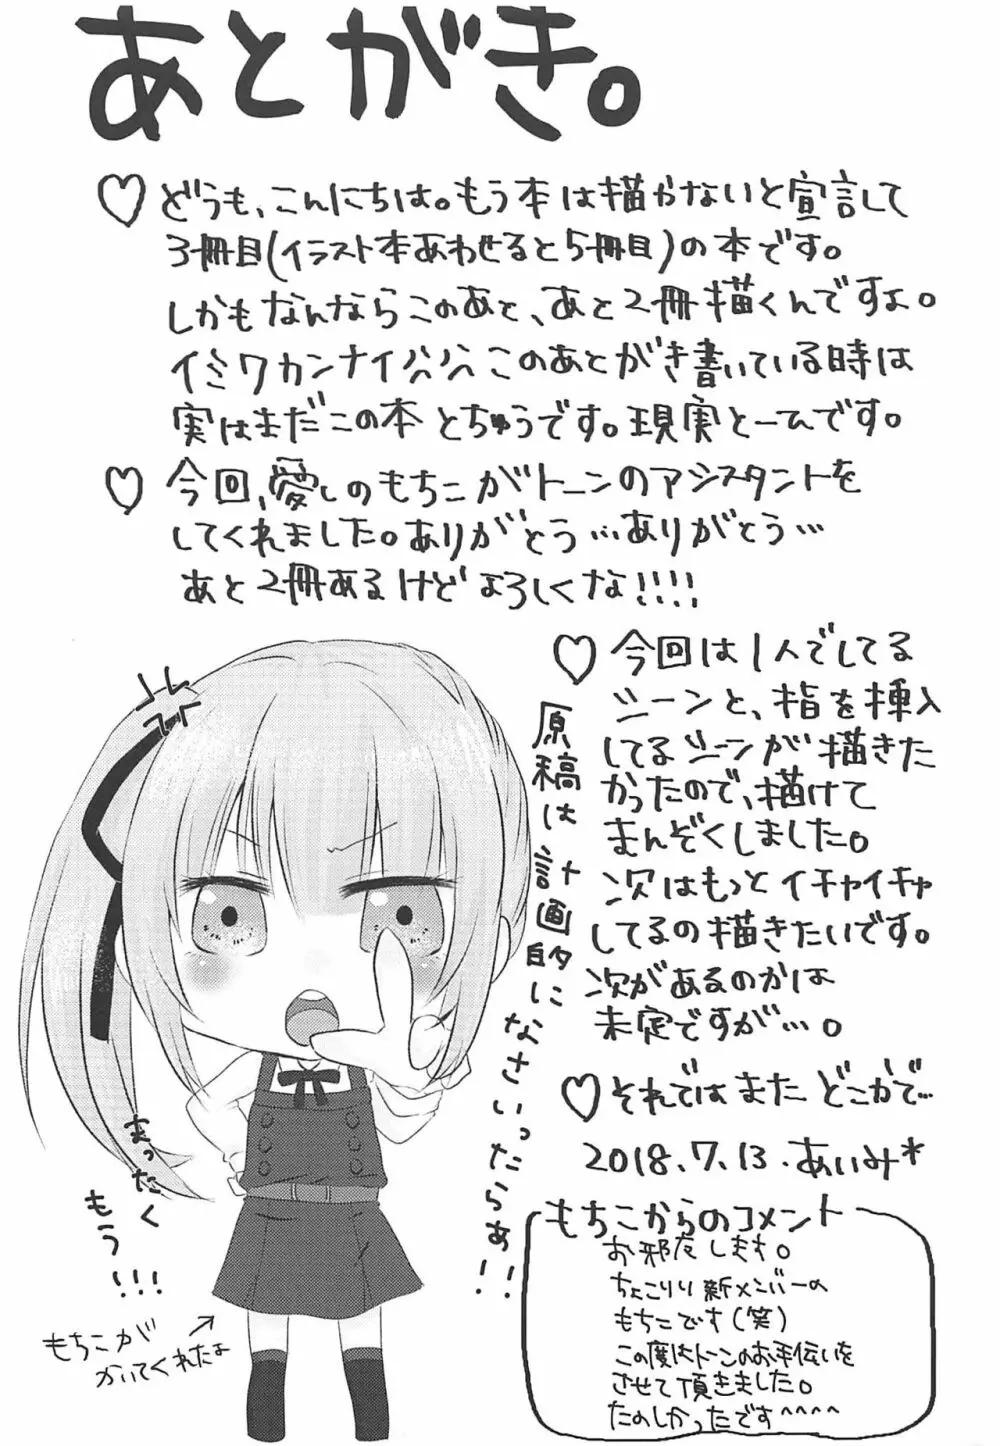 あとがき。
♡ どうも、こんにちは。もう本は描かないと宣言して
3冊目(イラスト本あわせると5冊目)の本です。
しかもなんならこのあと、あと2冊描くんですよ。
イミワカンナイ このあとがき書いている時は
実はまだこの本とちゅうです。現実とーひです。
♡ 今回、愛しのもちこがトーンのアシスタントを
してくれました。ありがとう…ありがとう…
あと2冊あるけどよろしくな!!!!
♡ 今回は1人でしてる
シーンと、指を挿入
してるシーンが描きた
かったので、描けて
まんぞくしました。
次はもっとイチャイチャ
してるの描きたいです。
次があるのかは
未定ですが…。
♡ それではまたどこかで…
2018.7.13.あいみ*
原稿は計画的になさいったらぁ!!
まったく
もう!!!
もちこが
かいてくれたよ
もちこからのコメント
お邪友します。
ちょこりり新メンバーの
もちこです(笑)
この度はトーンのお手伝いを
させて頂きました。
たのしかったです^^^^